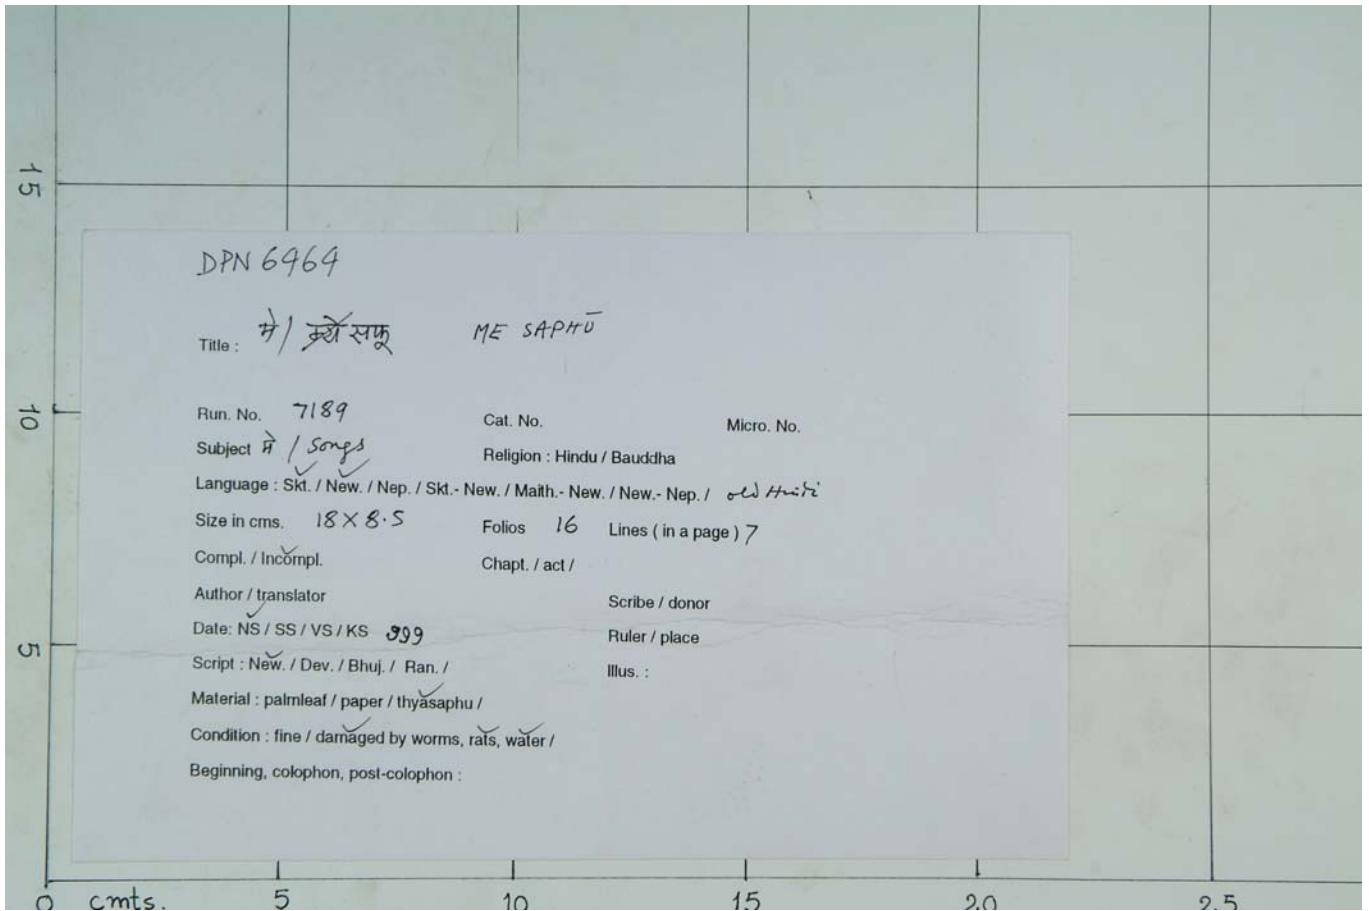 15
DPN 6464
Title : मे / म्ये सफू ME SAPHŪ
10
Run. No. 7189 Cat. No. Micro. No.
Subject मे / songs Religion : Hindu / Bauddha
Language : Skt. / New. / Nep. / Skt.- New. / Maith.- New. / New.- Nep. / old Hindi
Size in cms. 18 X 8.5 Folios 16 Lines ( in a page ) 7
Compl. / Incompl. Chapt. / act /
Author / translator Scribe / donor
Date: NS / SS / VS / KS Ruler / place
5
Script : New. / Dev. / Bhuj. / Ran. / Illus. :
Material : palmleaf / paper / thyasaphu /
Condition : fine / damaged by worms, rats, water /
Beginning, colophon, post-colophon :
0 cmts. 5 10 15 20 25